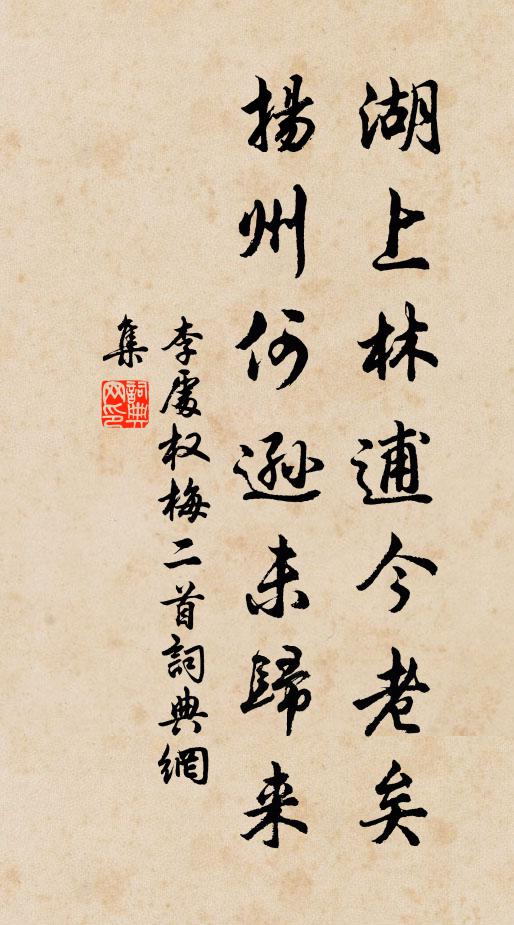 湖上林逋今老矣
揚州何遜未歸来
李處权梅二首詞典網
集
詞典網印